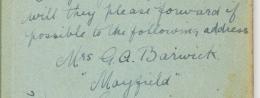 will they please forward if
possible to the following address
Mrs G.A. Barwick
"Mayfield"